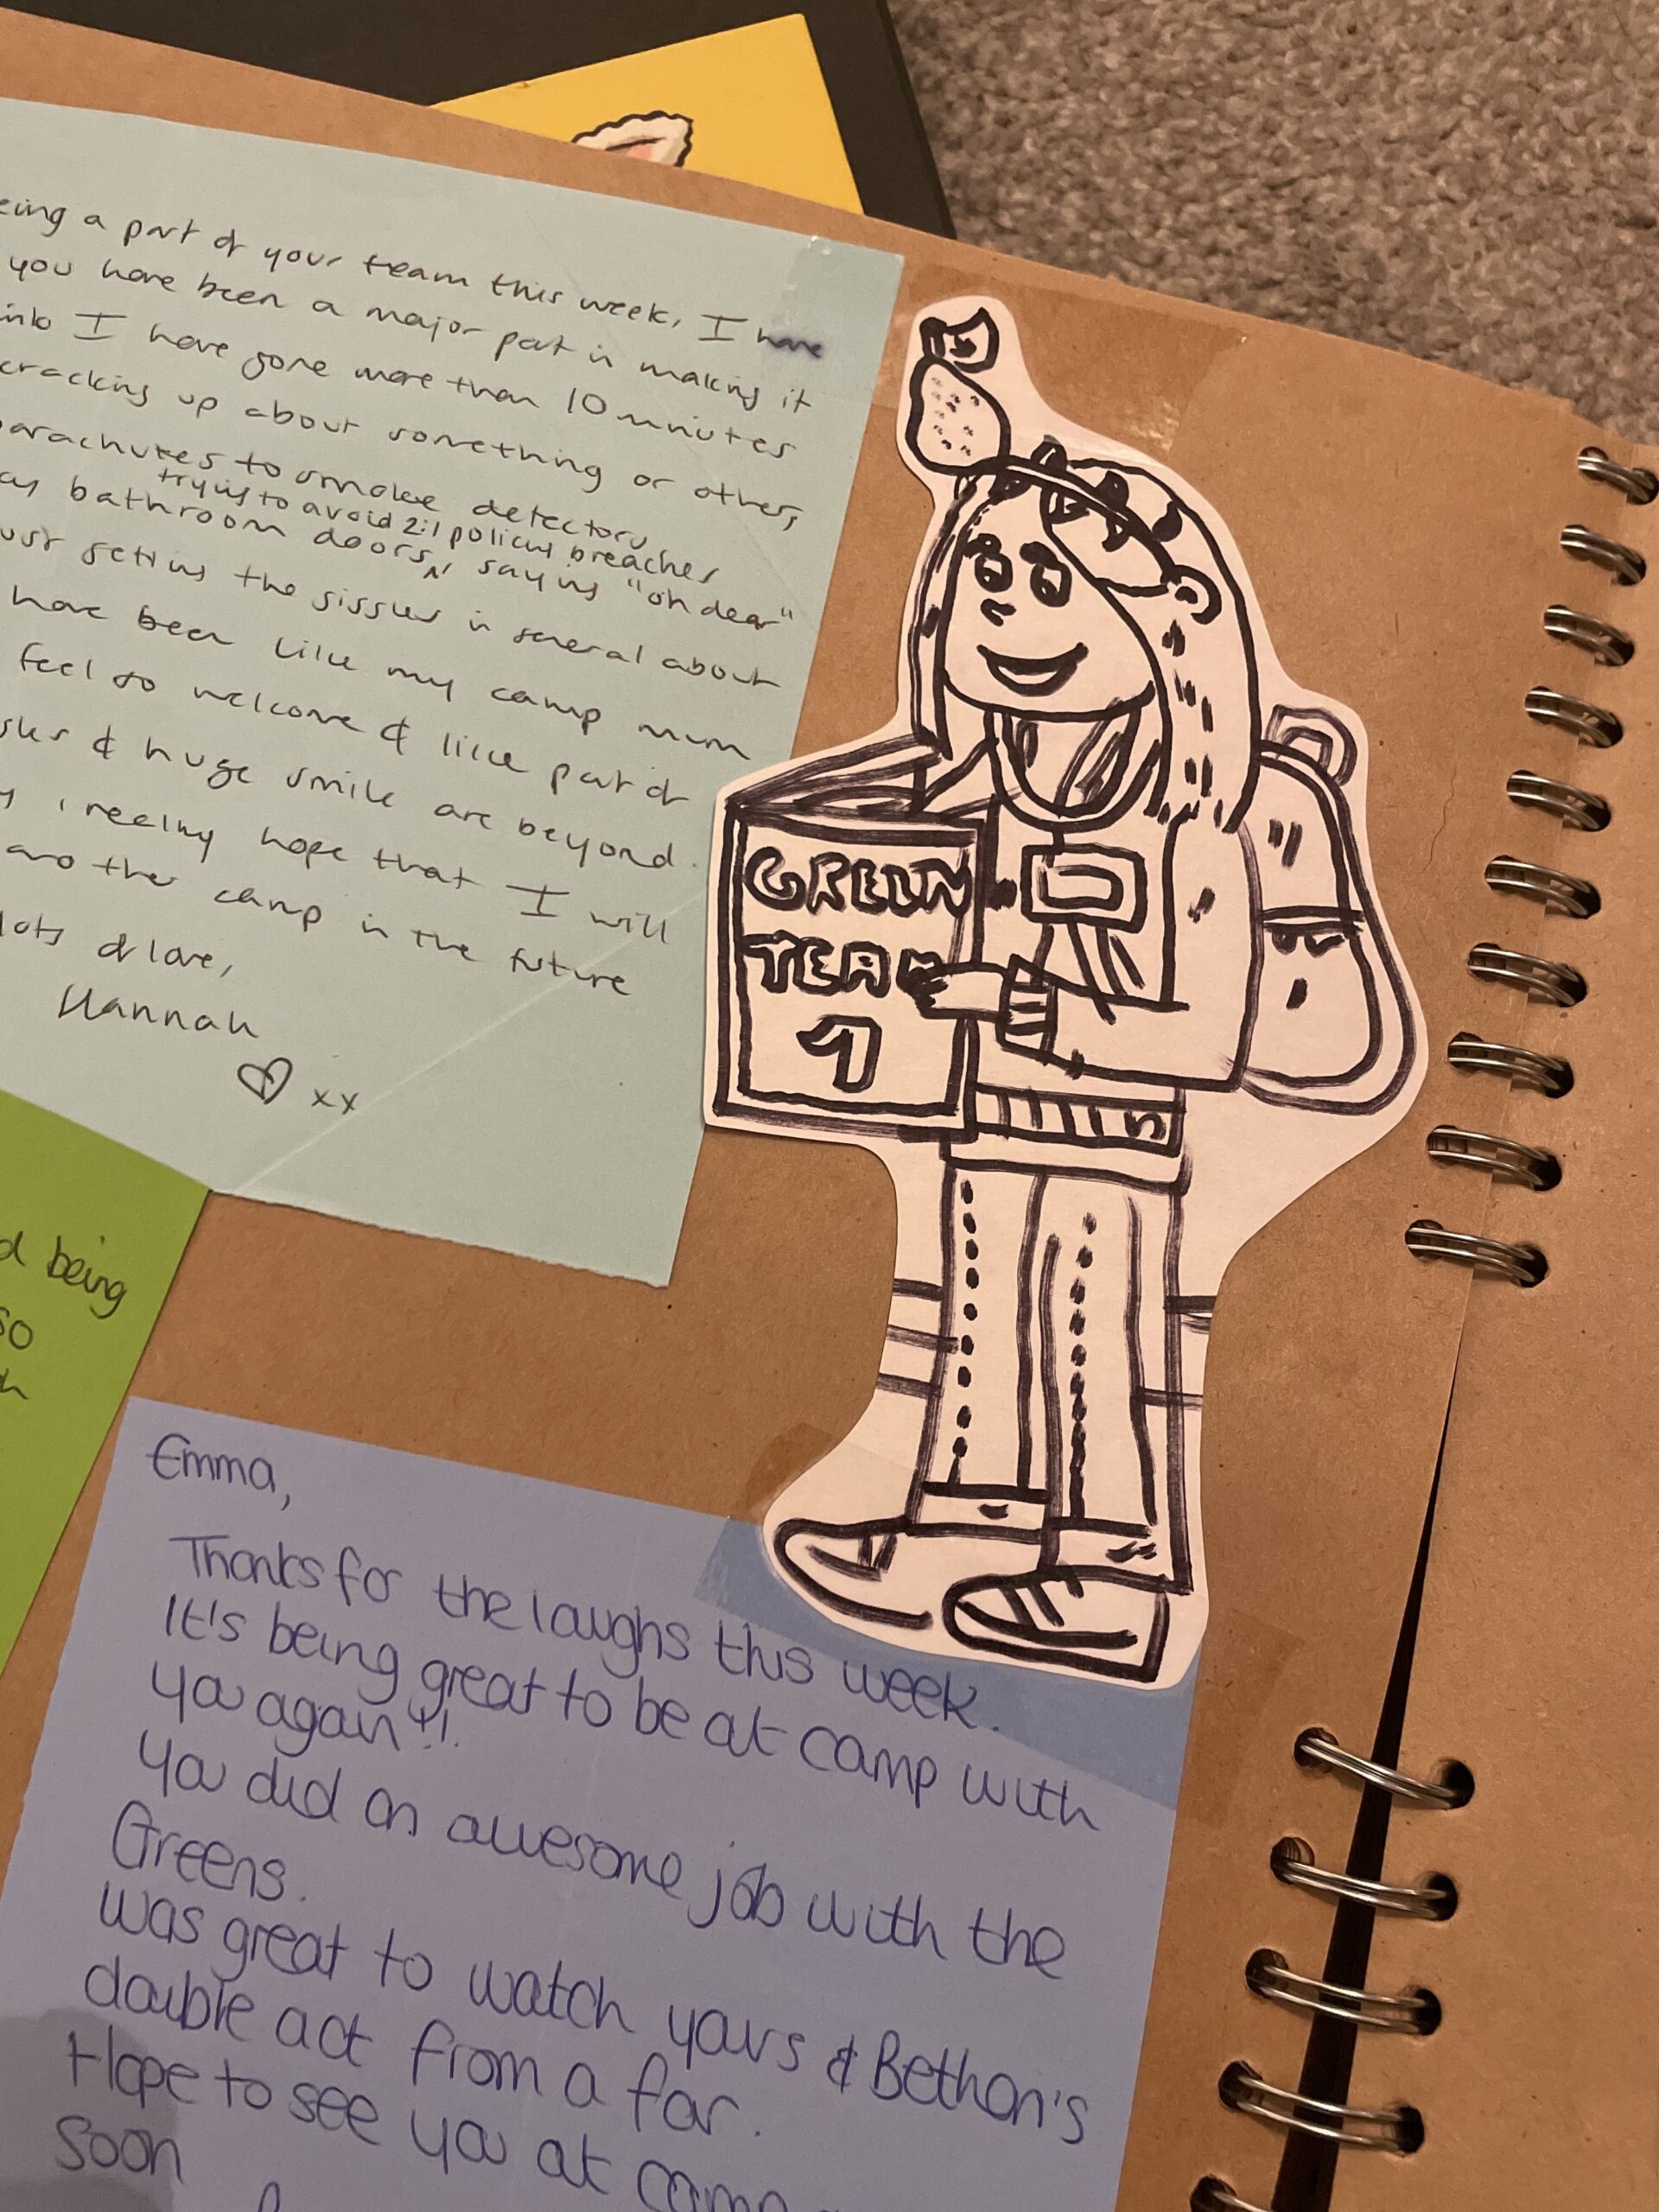 eing a part of your team this week, I have
you have been a major part in making it
ink I have gone more than 10 minutes
cracking up about something or other,
parachutes to smoke detectors,
trying to avoid 2:1 policy breaches
bathroom doors, saying "oh dear"
ust getting the in several about
have been like my camp mum
feel so welcome & like part of
& huge smile are beyond.
I really hope that I will
another camp in the future
lots of love,
Hannah
xx
GREEN
TEAM
1
d being
so
h
Emma,
Thanks for the laughs this week.
It's being great to be at camp with
you again!!
You did an awesome job with the
Greens.
Was great to watch yours & Bethan's
double act from a far.
Hope to see you at camp
soon